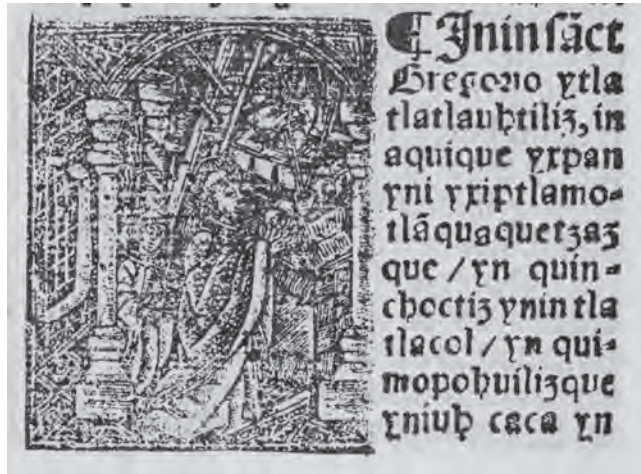 ¶ Inin sãct
Gregorio ytla
tlatlauhtiliz, in
aquique yxpan
yni yxiptlamo-
tlãquaquetzaz
que / yn quin-
choctiz ynin tla
tlacol / yn qui-
mopohuilizque
yniuh caca yn